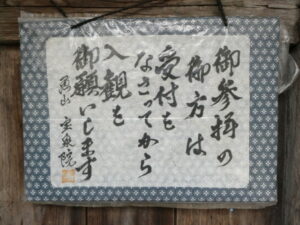 御参拝の
御方は
受付を
なさってから
入観を
御願いします